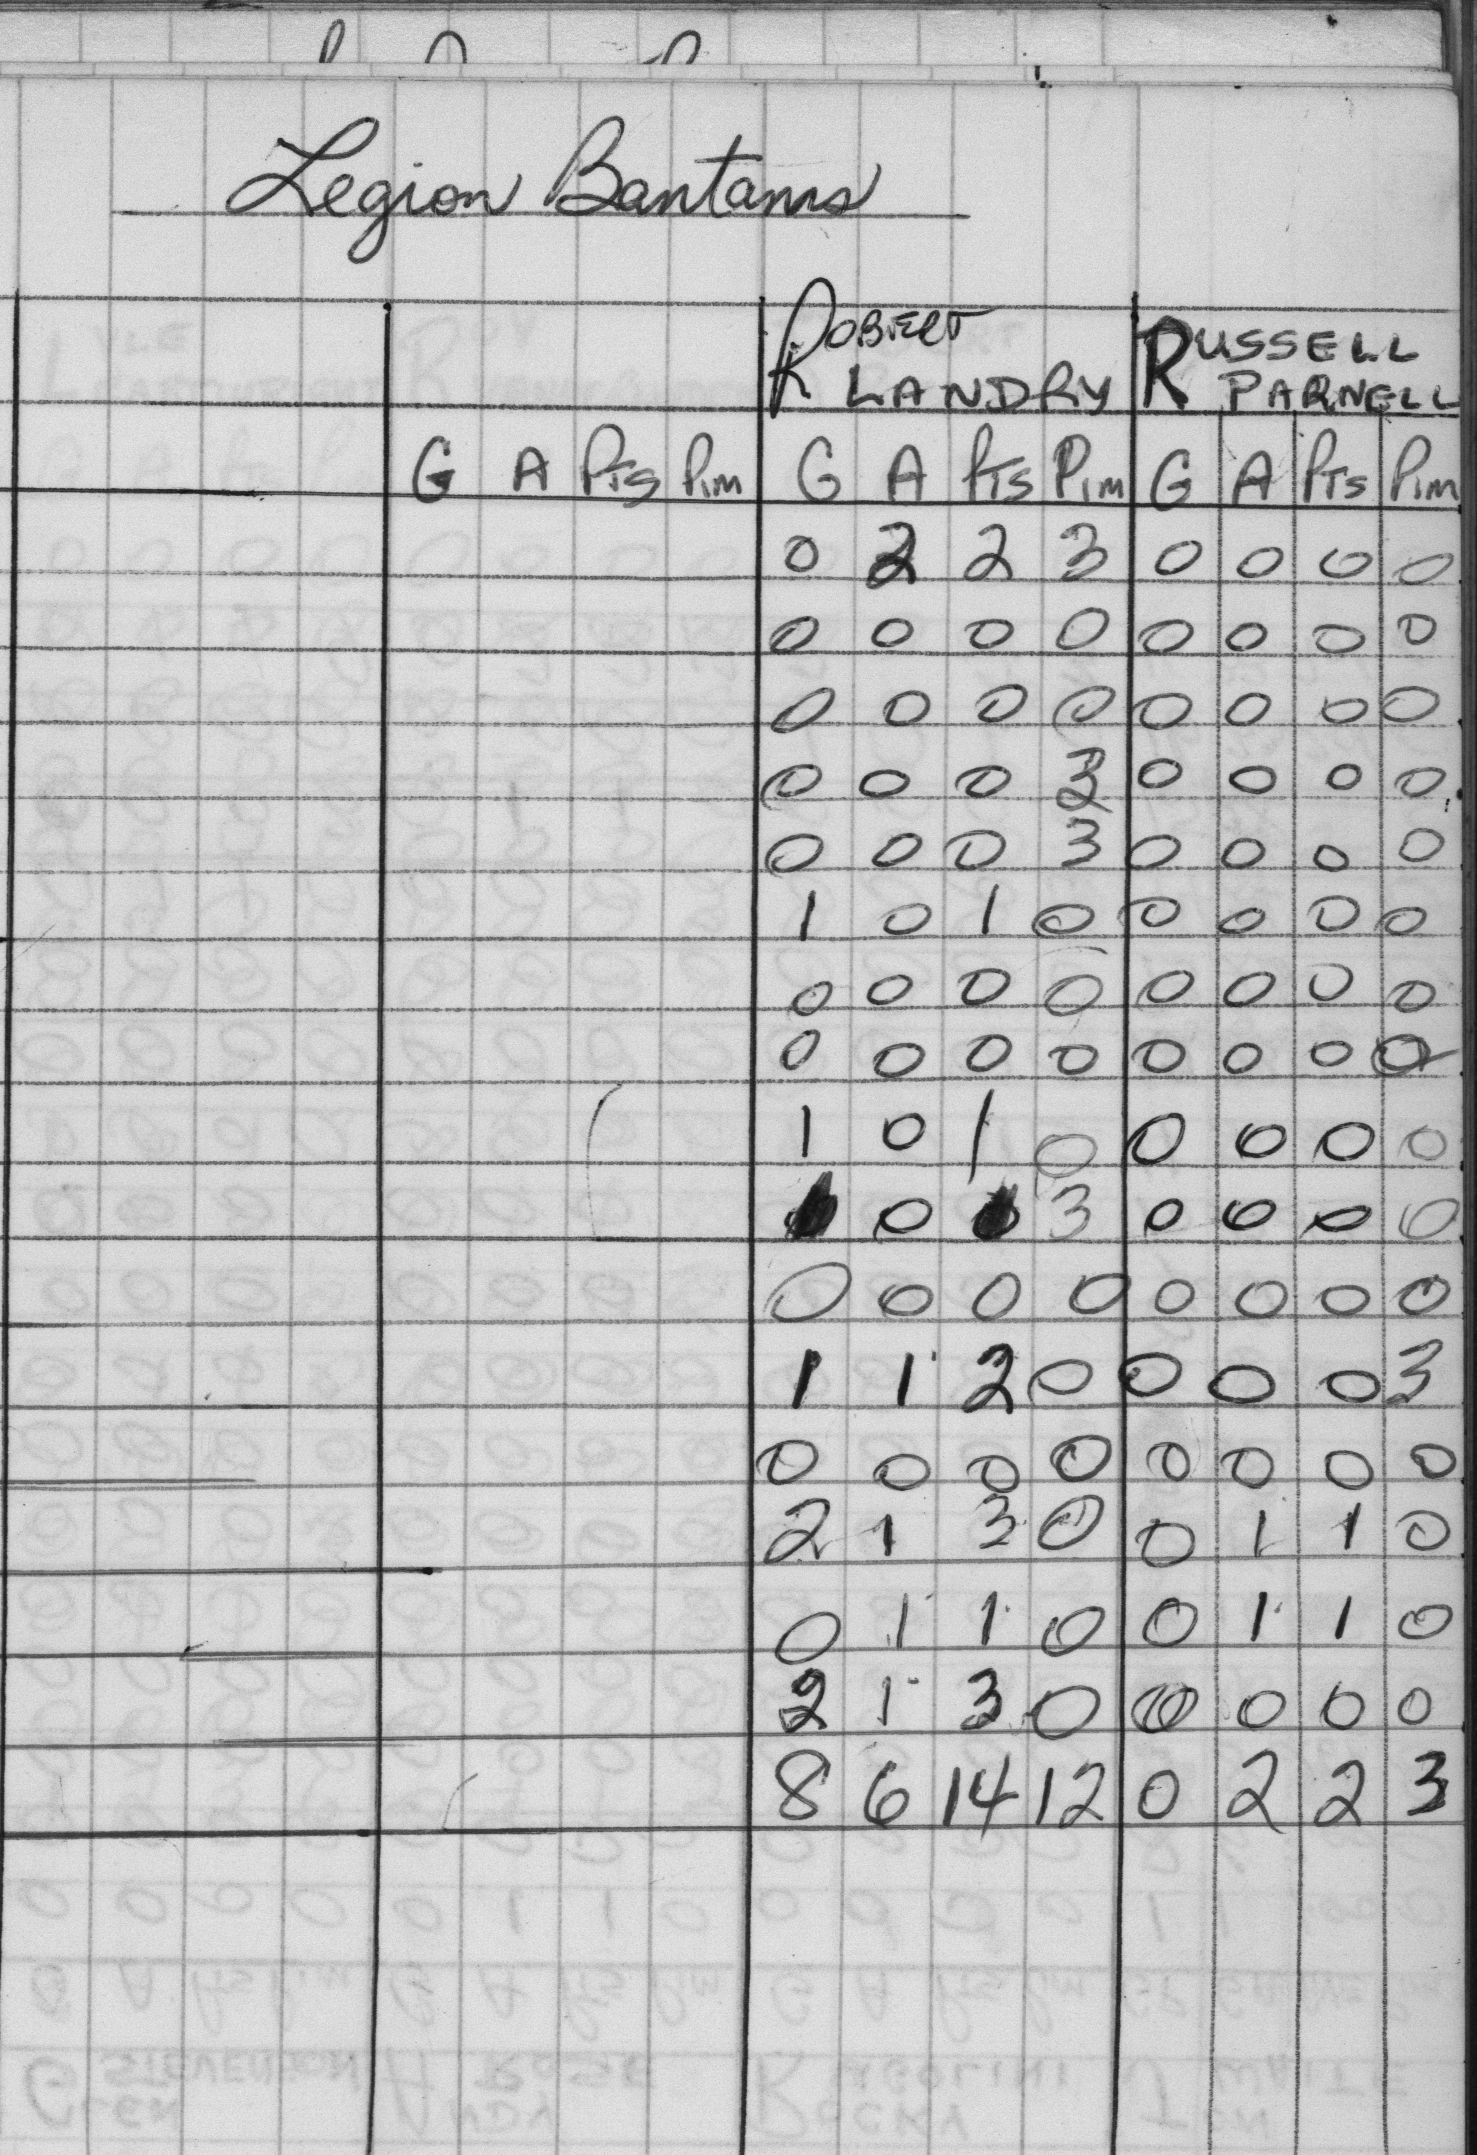 Legion Bantams
ROBERT RUSSELL
LANDRY PARNELL
G A Pts Pim G A Pts Pim G A Pts Pim
0 2 2 3 0 0 0 0
0 0 0 0 0 0 0 0
0 0 0 0 0 0 0 0
0 0 0 3 0 0 0 0
0 0 0 3 0 0 0 0
1 0 1 0 0 0 0 0
0 0 0 0 0 0 0 0
0 0 0 0 0 0 0 0
1 0 1 0 0 0 0 0
0 3 0 0 0 0
0 0 0 0 0 0 0 0
1 1 2 0 0 0 0 3
0 0 0 0 0 0 0 0
2 1 3 0 0 1 1 0
0 1 1 0 0 1 1 0
2 1 3 0 0 0 0 0
8 6 14 12 0 2 2 3